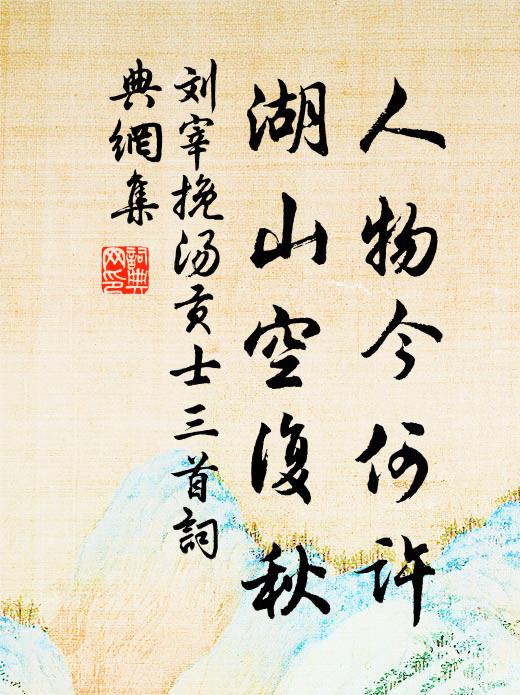 人物今何许
湖山空復秋
刘宰挽汤贡士三首詞
典網集
詞典
网印